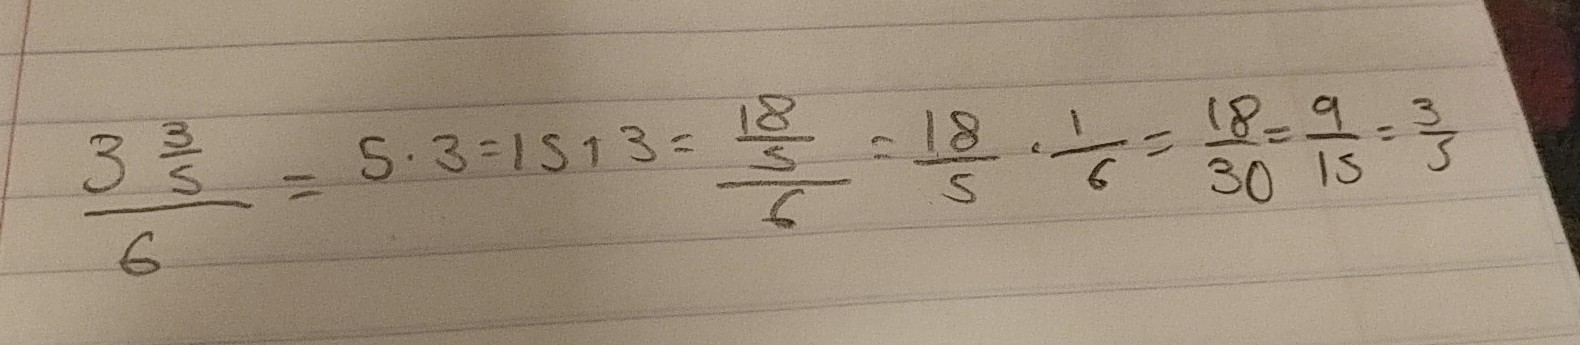 3 3/5 / 6 = 5 · 3 = 15 + 3 = 18/5 / 6 = 18/5 · 1/6 = 18/30 = 9/15 = 3/5